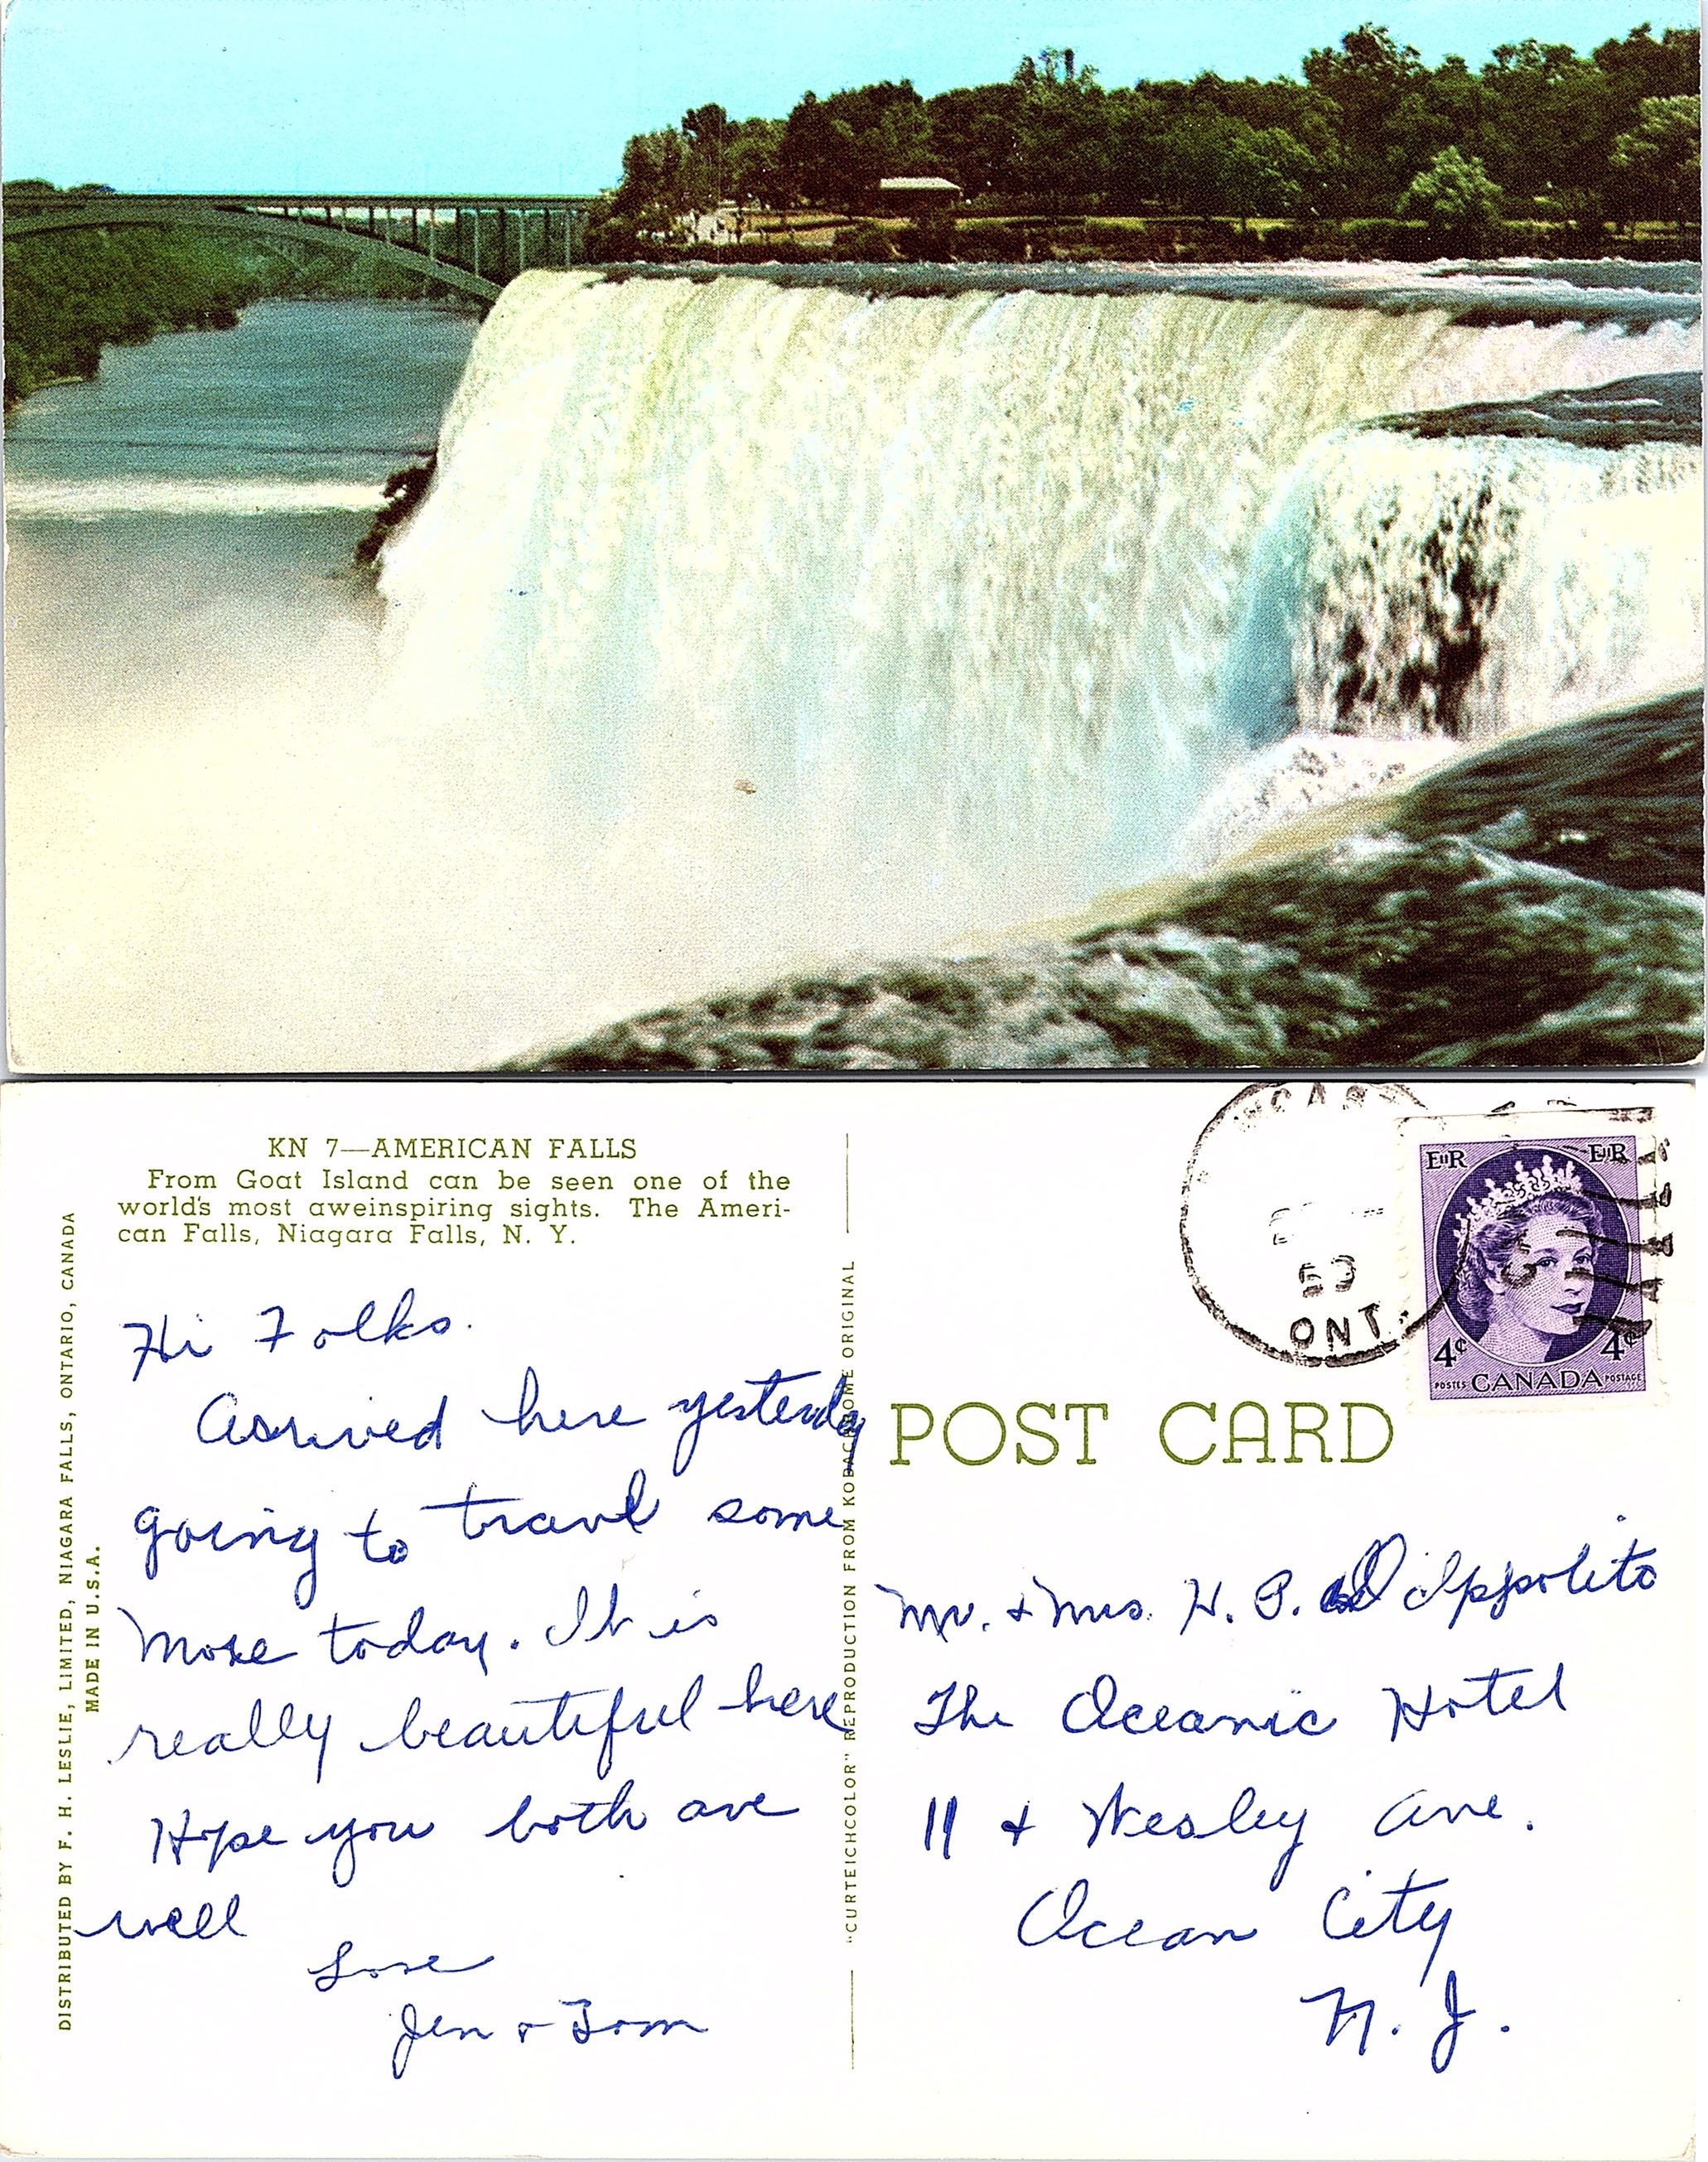 KN 7—AMERICAN FALLS
From Goat Island can be seen one of the
world's most aweinspiring sights. The Ameri-
can Falls, Niagara Falls, N. Y.
DISTRIBUTED BY F. H. LESLIE, LIMITED, NIAGARA FALLS, ONTARIO, CANADA
MADE IN U.S.A.
Hi Folks.
Arrived here yesterdy
going to travel some
more today. It is
really beautiful here
Hope you both are
well
Love
Jen & Tom
"CURTEICHCOLOR" REPRODUCTION FROM KODACHROME ORIGINAL
ONT.
EIIR EIIR
4¢ 4¢
POSTES CANADA POSTAGE
POST CARD
Mr. & Mrs. H. P. D Ippolito
The Oceanic Hotel
11 & Wesley Ave.
Ocean City
N. J.